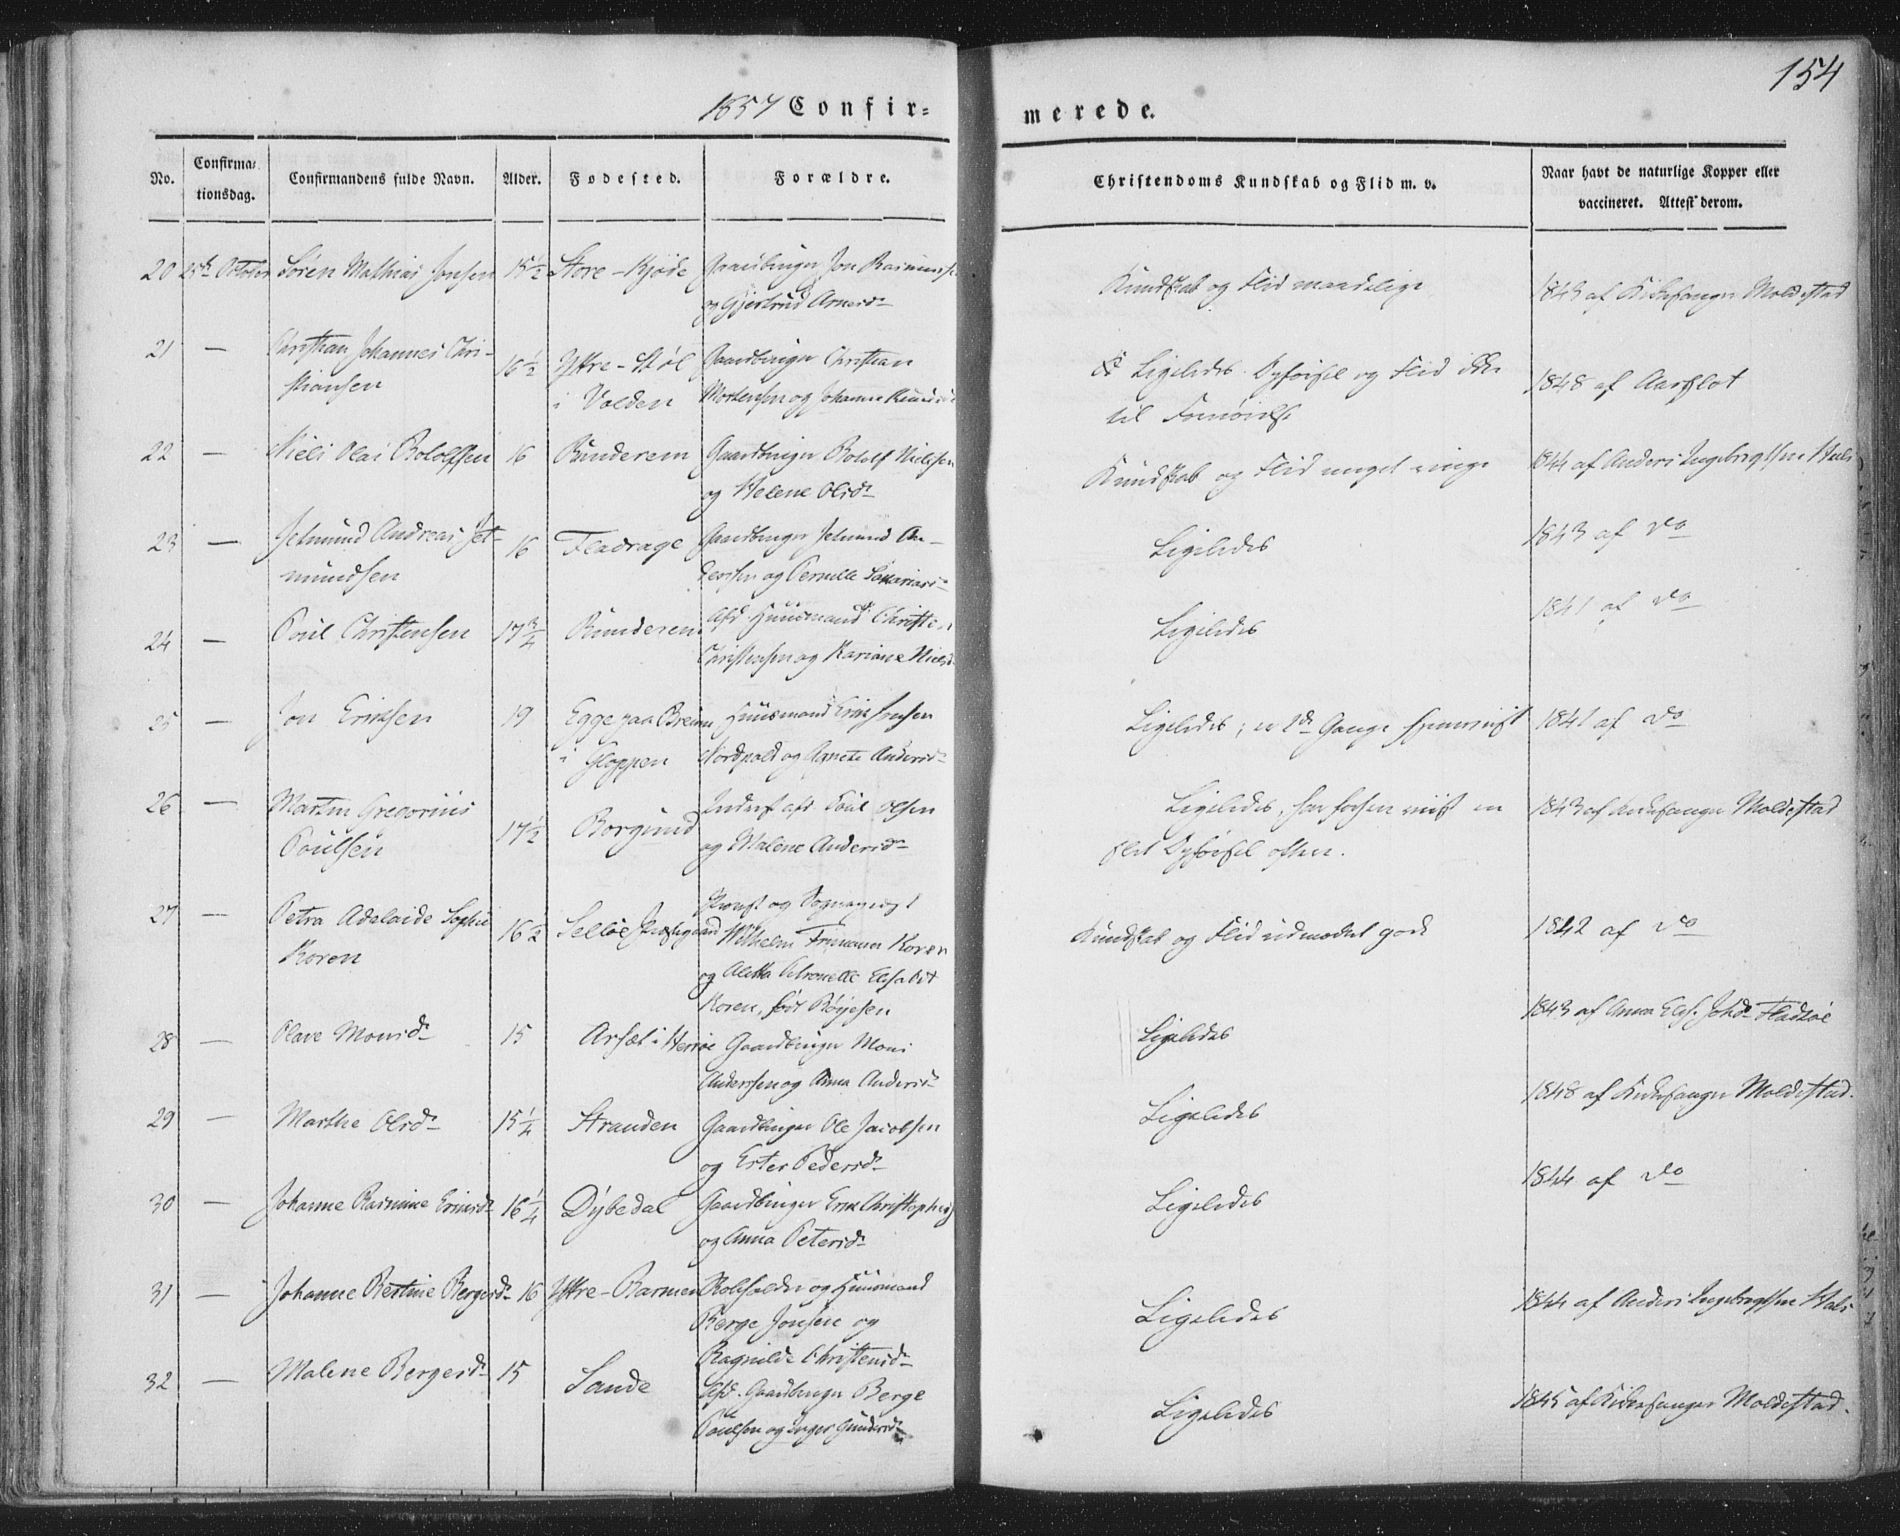 154
1857 Confir=
merede.
No. Confirma=tionsdag. Confirmandens fulde Navn. Alder. Fødested. Forældre. Christendoms Kundskab og Flid m. v. Naar havt de naturlige Kopper eller vaccineret. Attest derom.
20 October Søren Mathias Jonsen 15½ Store-Kjøde Gaardbruger Jon Rasmuss
og Gjertrud Arnesd:
Kundskab og Flid maadelige
1843 af Kirkesanger Moldestad
21 — Christian Johannes Chri-
stiansen
16½ Yttre-Støl
i Volden
Gaardbruger Christian
Mortensen og Johanne
Ligeledes. Opførsel og Flid ikke
til Fornøielse
1848 af Aarflot
22 — Niels Olai Rolofsen 16 Runderem Gaardbruger Rololf Nielsen
og Helene Olsd:
Kundskab og Flid meget ringe
1844 af Anders Ingebregtsen Huls
23 — Jetmund Andreas Jet-
mundsen
16 Fladrage Gaardbruger Jetmund An-
dersen og Pernille
Ligeledes
1843 af Do
24 — Poul Christensen 17¾ Runderem Afd. Huusmand Christen
Christensen og Kariane Nielsd
Ligeledes
1841 af Do
25 — Jon Eriksen 19 Egge paa Breim
i Gloppen
Huusmand Erik Jonsen
Nordpold og Agnete Andersd:
Ligeledes; er 2de Gange
1841 af Do
26 — Martin Gregorius
Poulsen
17½ Borgund Inderst afd. Poul Olsen
og Malene Andersd:
Ligeledes, har forhen viist en
slet Opførsel ofte.
1843 af Kirkesanger Moldestad
27 — Petra Adelaide Sophie
Koren
16½ Selløe Præstegaard Provst og Sognepræst
Wilhelm Frimann Koren
og Aletta Petronelle Elisabet
Koren, født Børjesen
Kundskab og Flid udmærket gode
1842 af Do
28 — Olave Monsd: 15 Arsæt i Herrøe Gaardbruger Mons
Andersen og Anna Andersd:
Ligeledes
1843 af Anna Elis. Johsd: Fladsøe
29 — Marthe Olsd: 15¼ Stranden Gaardbruger Ole Jacobsen
og Ester Pedersd:
Ligeledes
1848 af Kirkesanger Moldestad.
30 — Johanne Rasmine Eriksd: 16¼ Dybedal Gaardbruger Erik Christophers
og Anna Petersd:
Ligeledes
1844 af Do
31 — Johanne Bertine Bergesd: 16 Yttre-Barmen Rolfholder og Huusmand
Berge Jonsen og
Ragnilde Christensd:
Ligeledes
1844 af Anders Ingebregtsen Huls
32 — Malene Bergesd: 15 Sande Afd. Gaardbruger Berge
Poulsen og Inger Gundersd:
Ligeledes
1845 af Kirkesanger Moldestad.